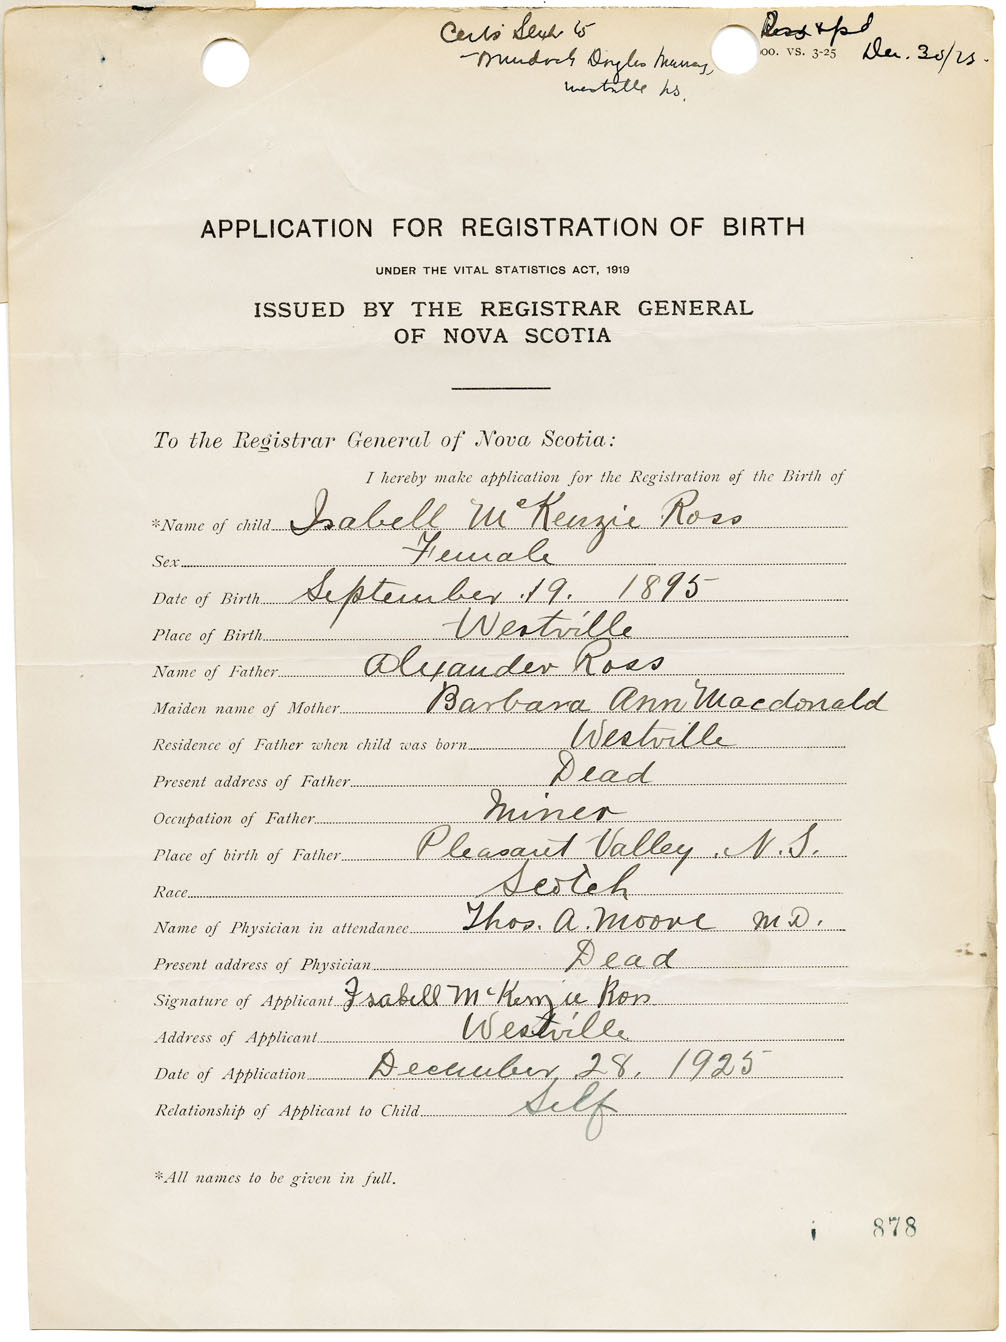 Certs Sent to
Murdoch Douglas Murray,
Westville NS.
& pd
00. VS. 3-25
Dec. 30/25.
APPLICATION FOR REGISTRATION OF BIRTH
UNDER THE VITAL STATISTICS ACT, 1919
ISSUED BY THE REGISTRAR GENERAL
OF NOVA SCOTIA
To the Registrar General of Nova Scotia:
I hereby make application for the Registration of the Birth of
*Name of child Isabell McKenzie Ross
Sex Female
Date of Birth September 19. 1895
Place of Birth Westville
Name of Father Alexander Ross
Maiden name of Mother Barbara Ann Macdonald
Residence of Father when child was born Westville
Present address of Father Dead
Occupation of Father Miner
Place of birth of Father Pleasant Valley, N.S.
Race Scotch
Name of Physician in attendance Thos. A. Moore M.D.
Present address of Physician Dead
Signature of Applicant Isabell McKenzie Ross
Address of Applicant Westville
Date of Application December 28. 1925
Relationship of Applicant to Child Self
*All names to be given in full.
878